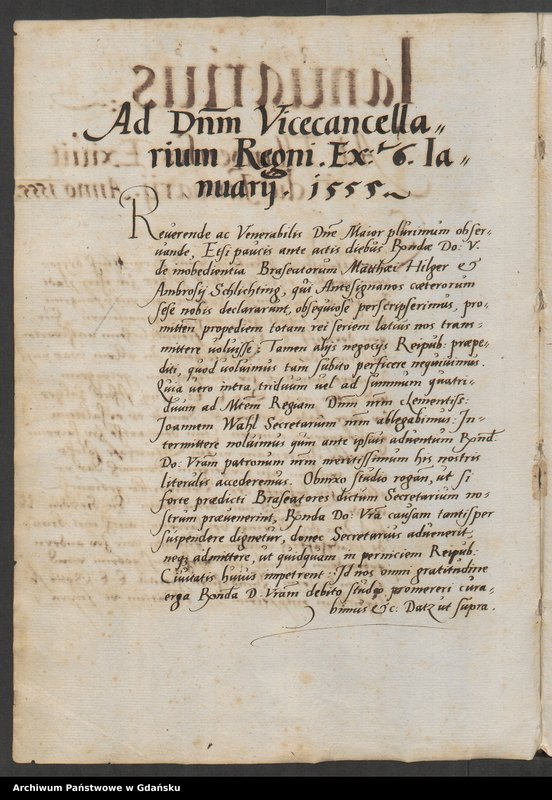 Ad Dnm Vicecancella„
rium Regni. Ex.t 6. Ia„
nuarij. 1555.
Reuerende ac Venerabilis Dne Maior plurimum obser„
uande, Etsi paucis ante actis diebus Rndæ Do: V.
de inobedientia Braseatorum Matthæi Hilger &
Ambrosij Schlichting, qui Antesignanos cæterorum
sese nobis declararunt, obsequiose perscripserimus, pro„
mitten propediem totam rei seriem latius nos trans„
mittere voluisse; Tamen alijs negocijs Reipub: præpe„
diti, quod voluimus tam subito perficere nequiuimus.
Quia vero intra triduum vel ad summum quatri„
duum ad Mtem Regiam Dnm nrm clementiss:
Ioannem Wahl Secretarium nrm ablegabimus: In„
termittere noluimus quin ante ipsius aduentum Rnd.
Do: Vram patronum nrm meritissimum his nostris
literulis accederemus. Obnixo studio rogan, ut si
forte prædicti Braseatores dictum Secretarium no„
strum præuenerint, Rnda Do: Vra causam tantisper
suspendere dignetur, donec Secretarius aduenerit
neq; admittere, ut quidquam in perniciem Reipub:
Ciuitatis huius impetrent. Id nos omni gratitudine
erga Rnda D. Vram debito studio promereri cura„
bimus &c: Datæ ut supra.
Archiwum Państwowe w Gdańsku